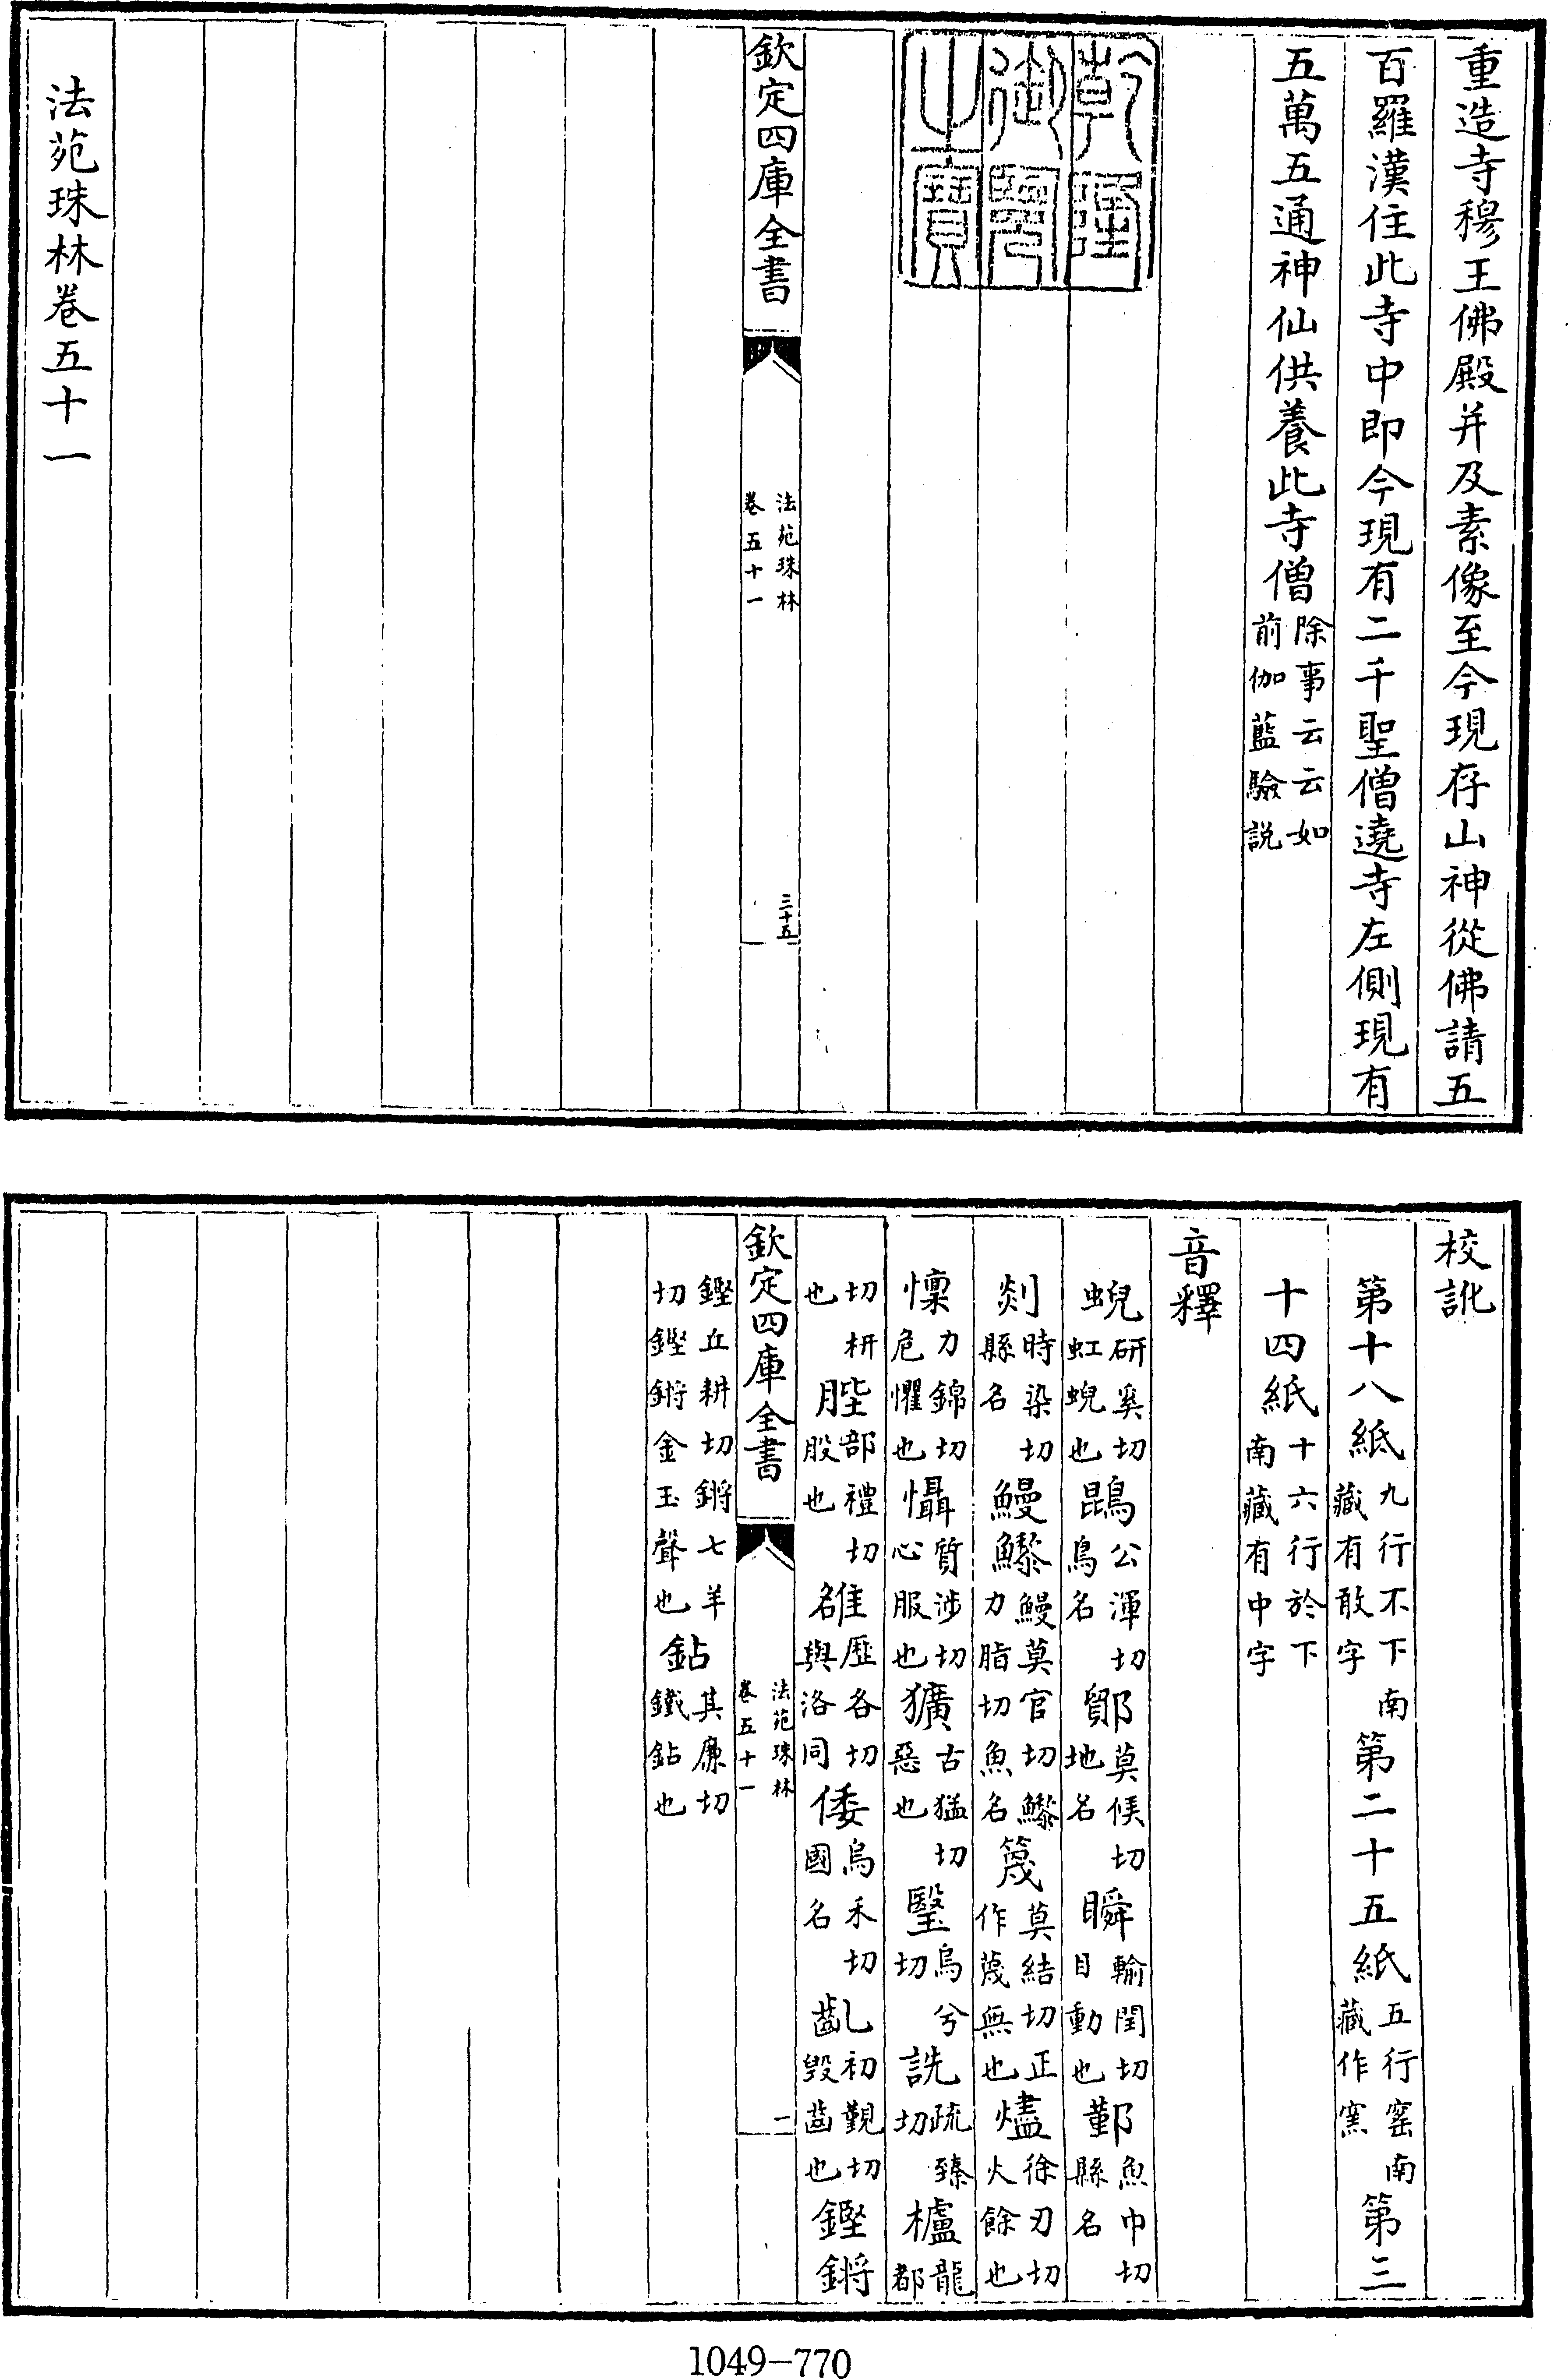 重造寺穆王佛殿并及素像至今現存山神從佛請五
百羅漢住此寺中即今現有二千聖僧遶寺左側現有
五萬五通神仙供養此寺僧除事云云如前伽藍驗説
乾隆御覽之寶
欽定四庫全書
法苑珠林
卷五十一
三十五
法苑珠林卷五十一
校訛
第十八紙九行不下南藏有敢字第二十五紙五行窰南藏作窯第三
十四紙十六行於下南藏有中字
音釋
蜺研奚切虹蜺也鵾公渾切鳥名鄮莫候切地名瞬輸閏切目動也鄞魚巾切縣名
剡時染切縣名鰻鱺鰻莫官切鱺力脂切魚名篾莫結切正作蔑無也燼徐刃切火餘也
懍力錦切危懼也懾質涉切心服也獷古猛切惡也瑿烏兮切詵疏臻切櫨龍都
切枅也髀部禮切股也雒歷各切與洛同倭烏禾切國名齔初覲切毀齒也鏗鏘
欽定四庫全書
法苑珠林
卷五十一
一
鏗丘耕切鏘七羊切鏗鏘金玉聲也鉆其廉切鐵鉆也
1049-770